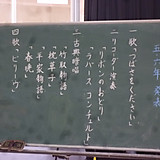 五、六年 発表
一 歌「つばさをください」
二 リコーダー演奏
「リボンのおどり」
「ラバースコンチェルト」
三 古典暗唱
「竹取物語」
「枕草子」
「平家物語」
「春暁」
四 歌「ビリーブ」